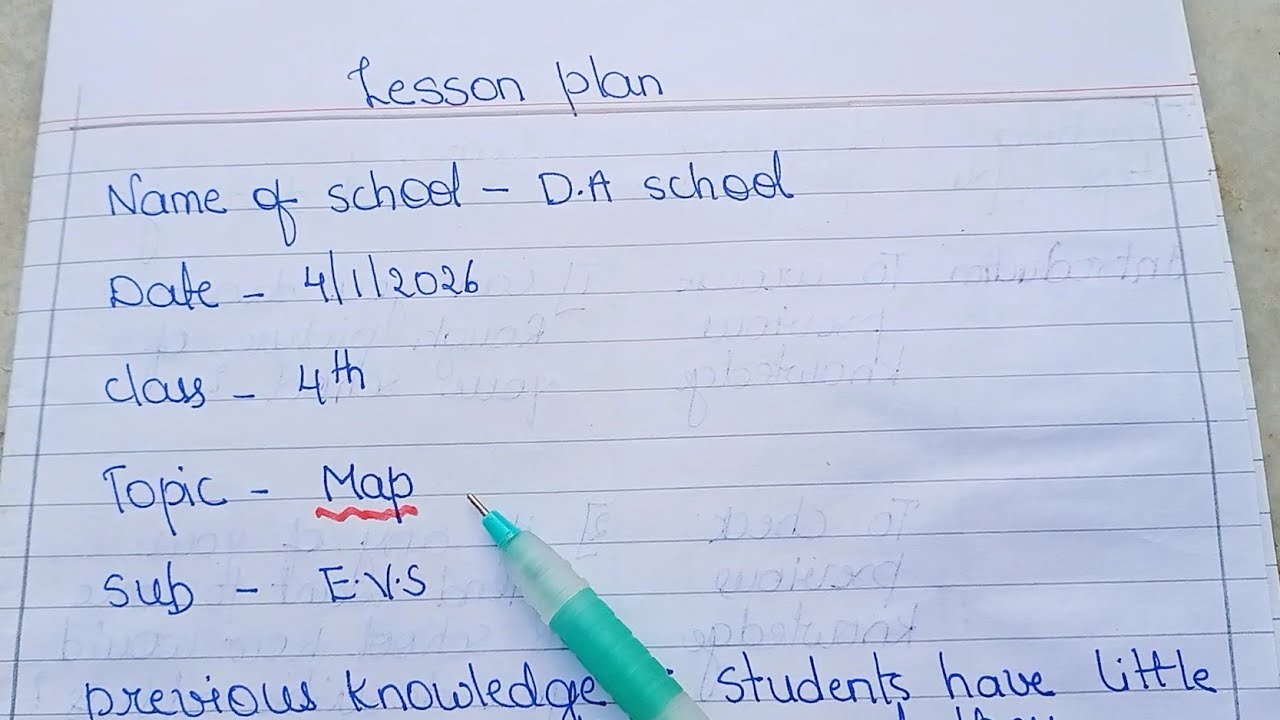 Lesson plan
Name of school - D.A school
Date - 4/1/2026
class - 4th
Topic - Map
Sub - E.V.S
previous knowledge : students have little